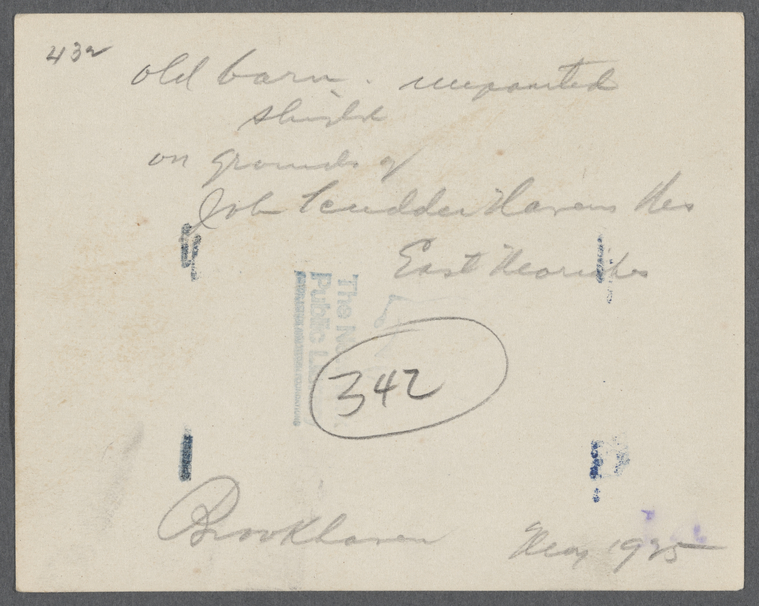 432
old barn. unpainted
shingled
on grounds of
Job Scudder Havens Res
East Moriches
The N
Public L
342
Brookhaven
May 1925